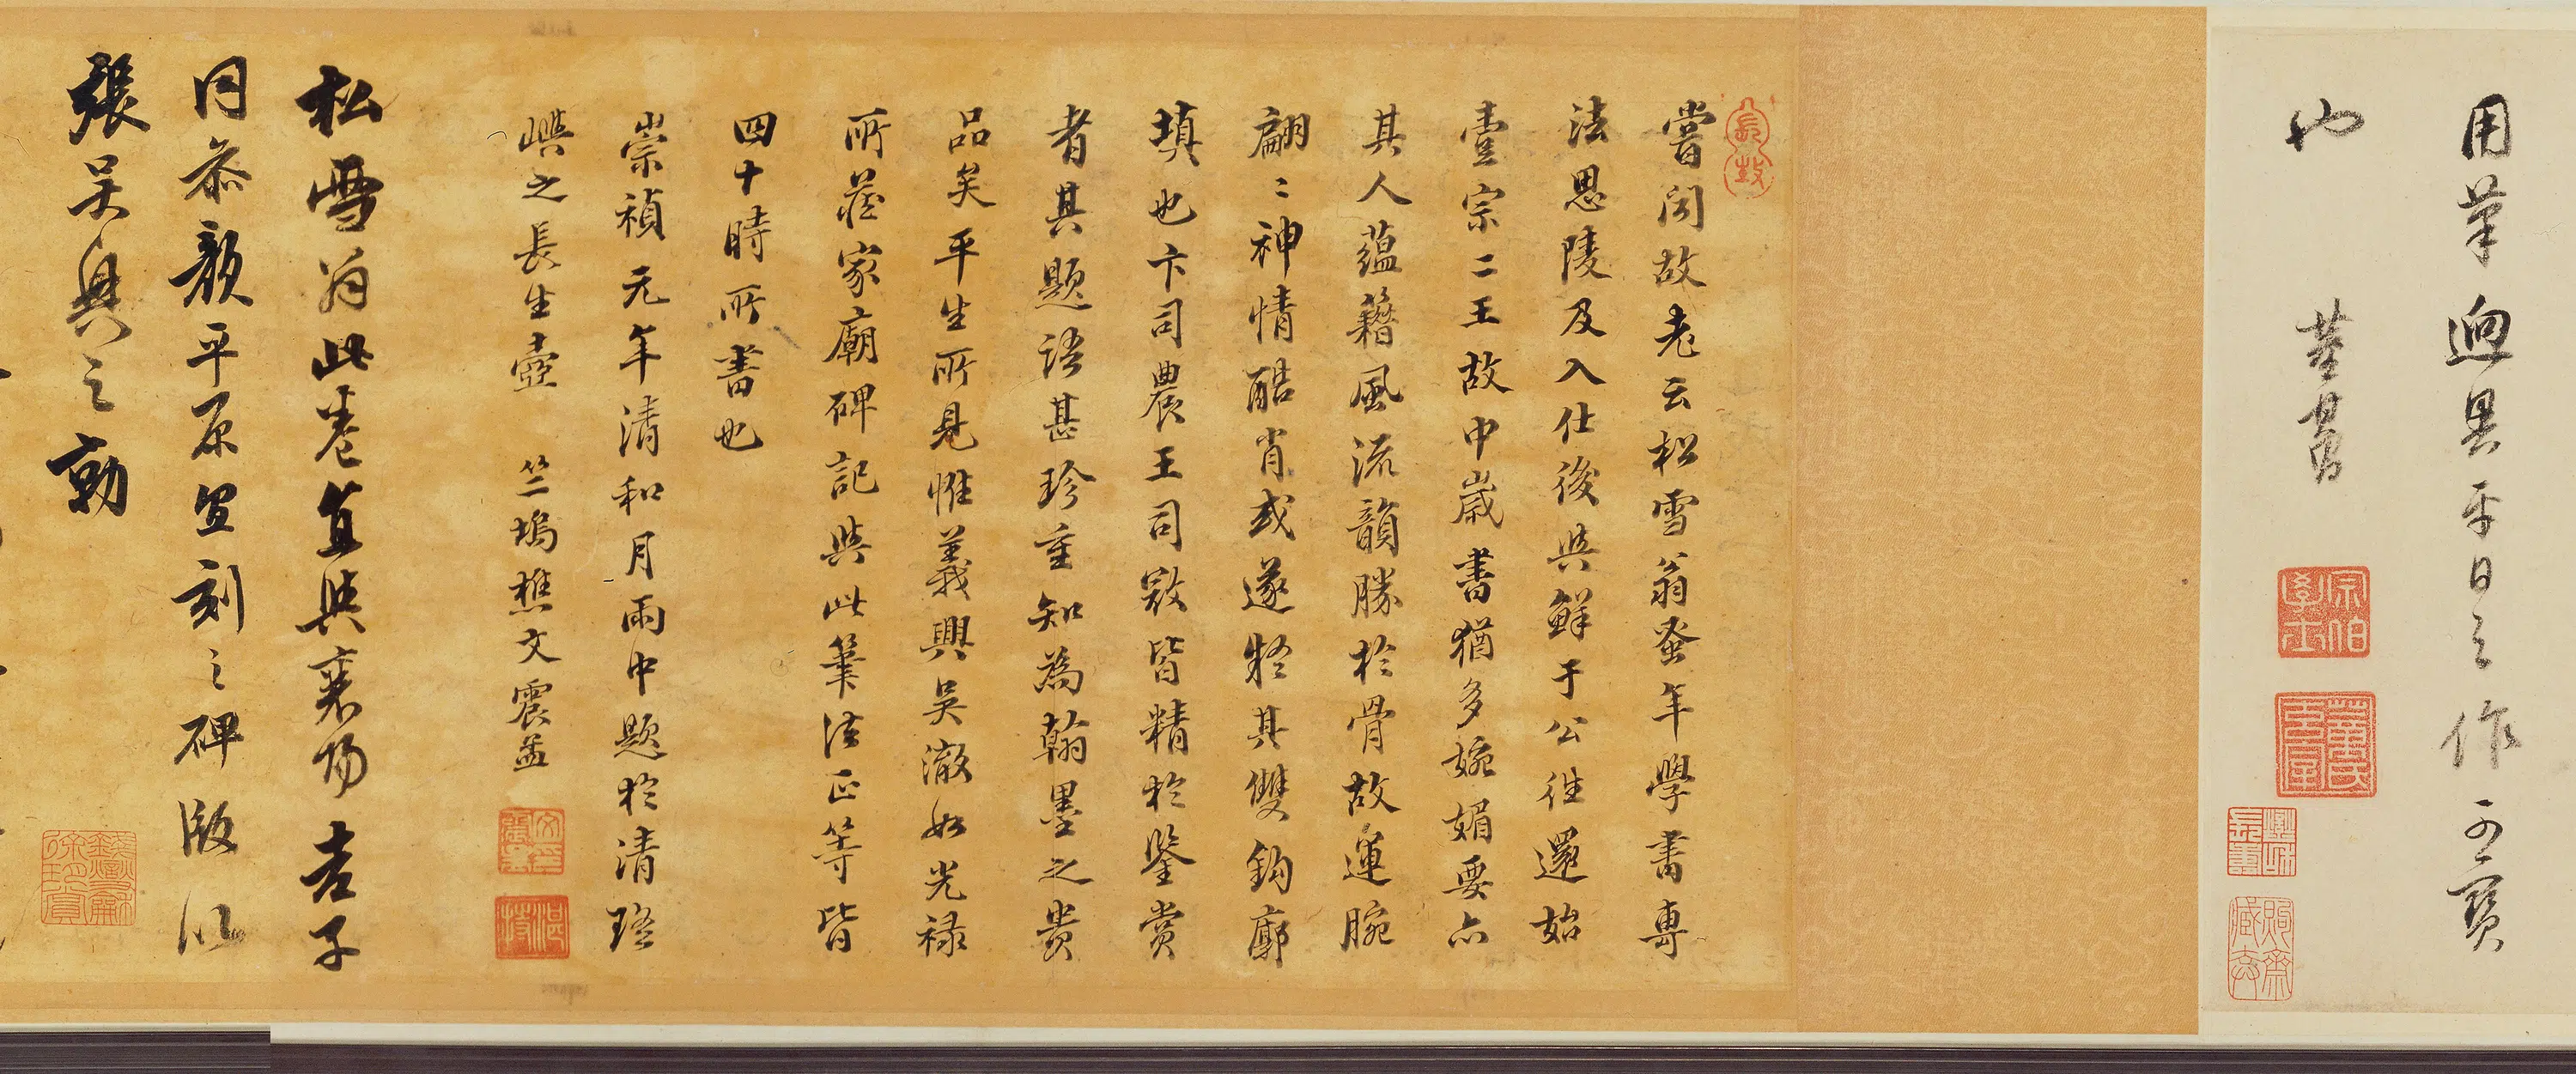 用筆迥異平日之作可寶
也 董其昌
嘗聞故老云松雪翁蚤年學書專
法思陵及入仕後與鮮于公往還始
壹宗二王故中歲書猶多婉媚要亦
其人蘊藉風流韻勝於骨故運腕
翩〻神情酷肖或遂疑其雙鈎廓
填也卞司農王司寇皆精於鑒賞
者其題語甚珍重知為翰墨之貴
品矣平生所見惟義興吳澈如光祿
所藏家廟碑記與此筆法正等皆
四十時所書也
崇禎元年清和月雨中題於清瑤
嶼之長生壺 竺塢樵文震孟
松雪翁此卷直與襄陽吉子
同參顏平原宜刻之碑版以
張吳興之勣